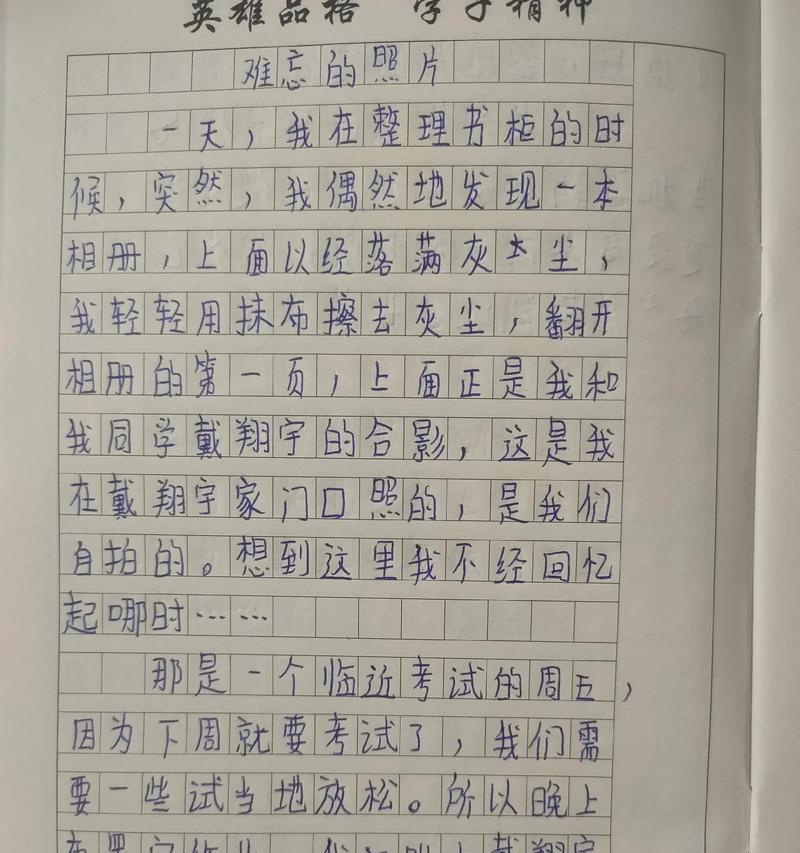 英雄品格 学子精神
难忘的照片
一天，我在整理书柜的时
候，突然，我偶然地发现一本
相册，上面以经落满灰土尘，
我轻轻用抹布擦去灰尘，翻开
相册的第一页，上面正是我和
我同学戴翔宇的合影，这是我
在戴翔宇家门口照的，是我们
自拍的。想到这里我不经回忆
起哪时……
那是一个临近考试的周五，
因为下周就要考试了，我们需
要一些试当地放松。所以晚上